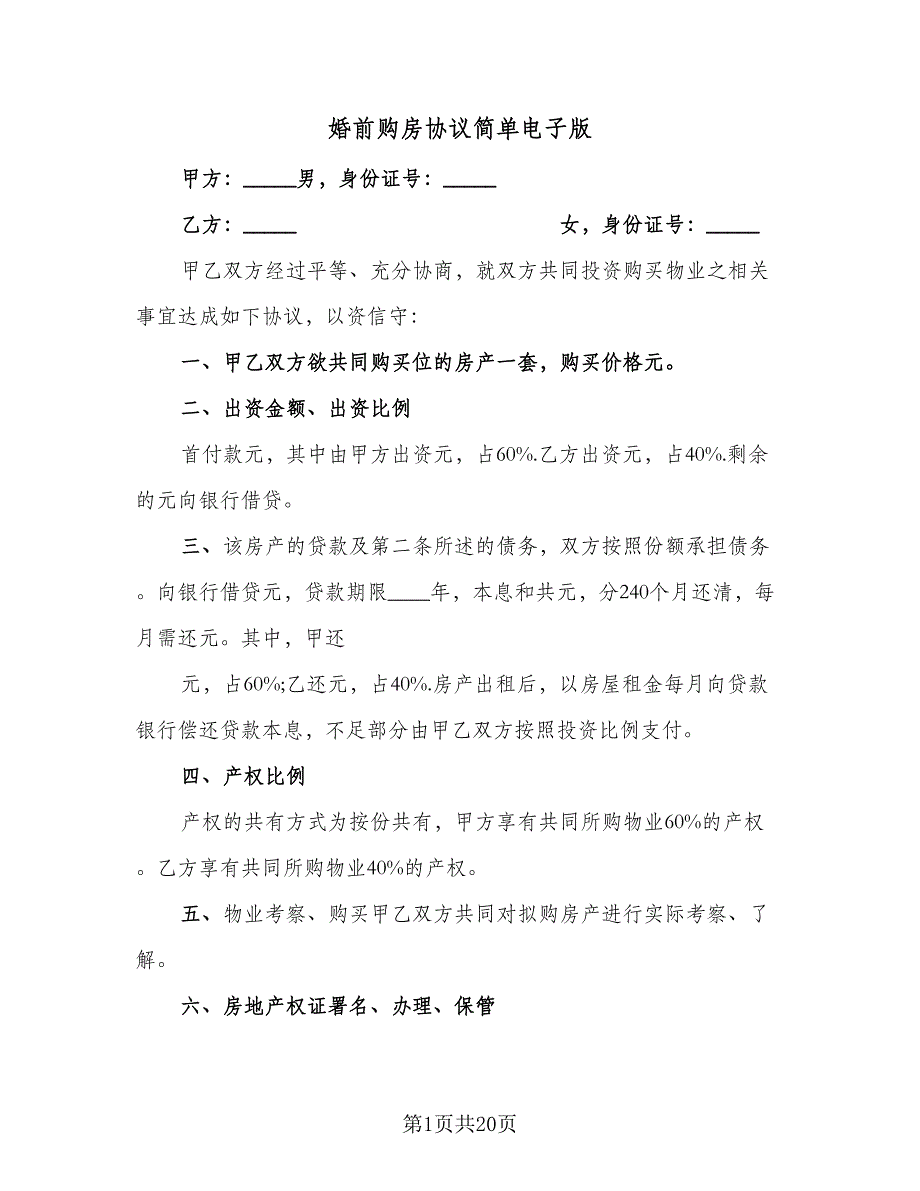 婚前购房协议简单电子版
甲方：_____男，身份证号：_____
乙方：_____ 女，身份证号：_____
甲乙双方经过平等、充分协商，就双方共同投资购买物业之相关
事宜达成如下协议，以资信守：
一、甲乙双方欲共同购买位的房产一套，购买价格元。
二、出资金额、出资比例
首付款元，其中由甲方出资元，占60%.乙方出资元，占40%.剩余
的元向银行借贷。
三、该房产的贷款及第二条所述的债务，双方按照份额承担债务
。向银行借贷元，贷款期限____年，本息和共元，分240个月还清，每
月需还元。其中，甲还
元，占60%;乙还元，占40%.房产出租后，以房屋租金每月向贷款
银行偿还贷款本息，不足部分由甲乙双方按照投资比例支付。
四、产权比例
产权的共有方式为按份共有，甲方享有共同所购物业60%的产权
。乙方享有共同所购物业40%的产权。
五、物业考察、购买甲乙双方共同对拟购房产进行实际考察、了
解。
六、房地产权证署名、办理、保管
第1页共20页